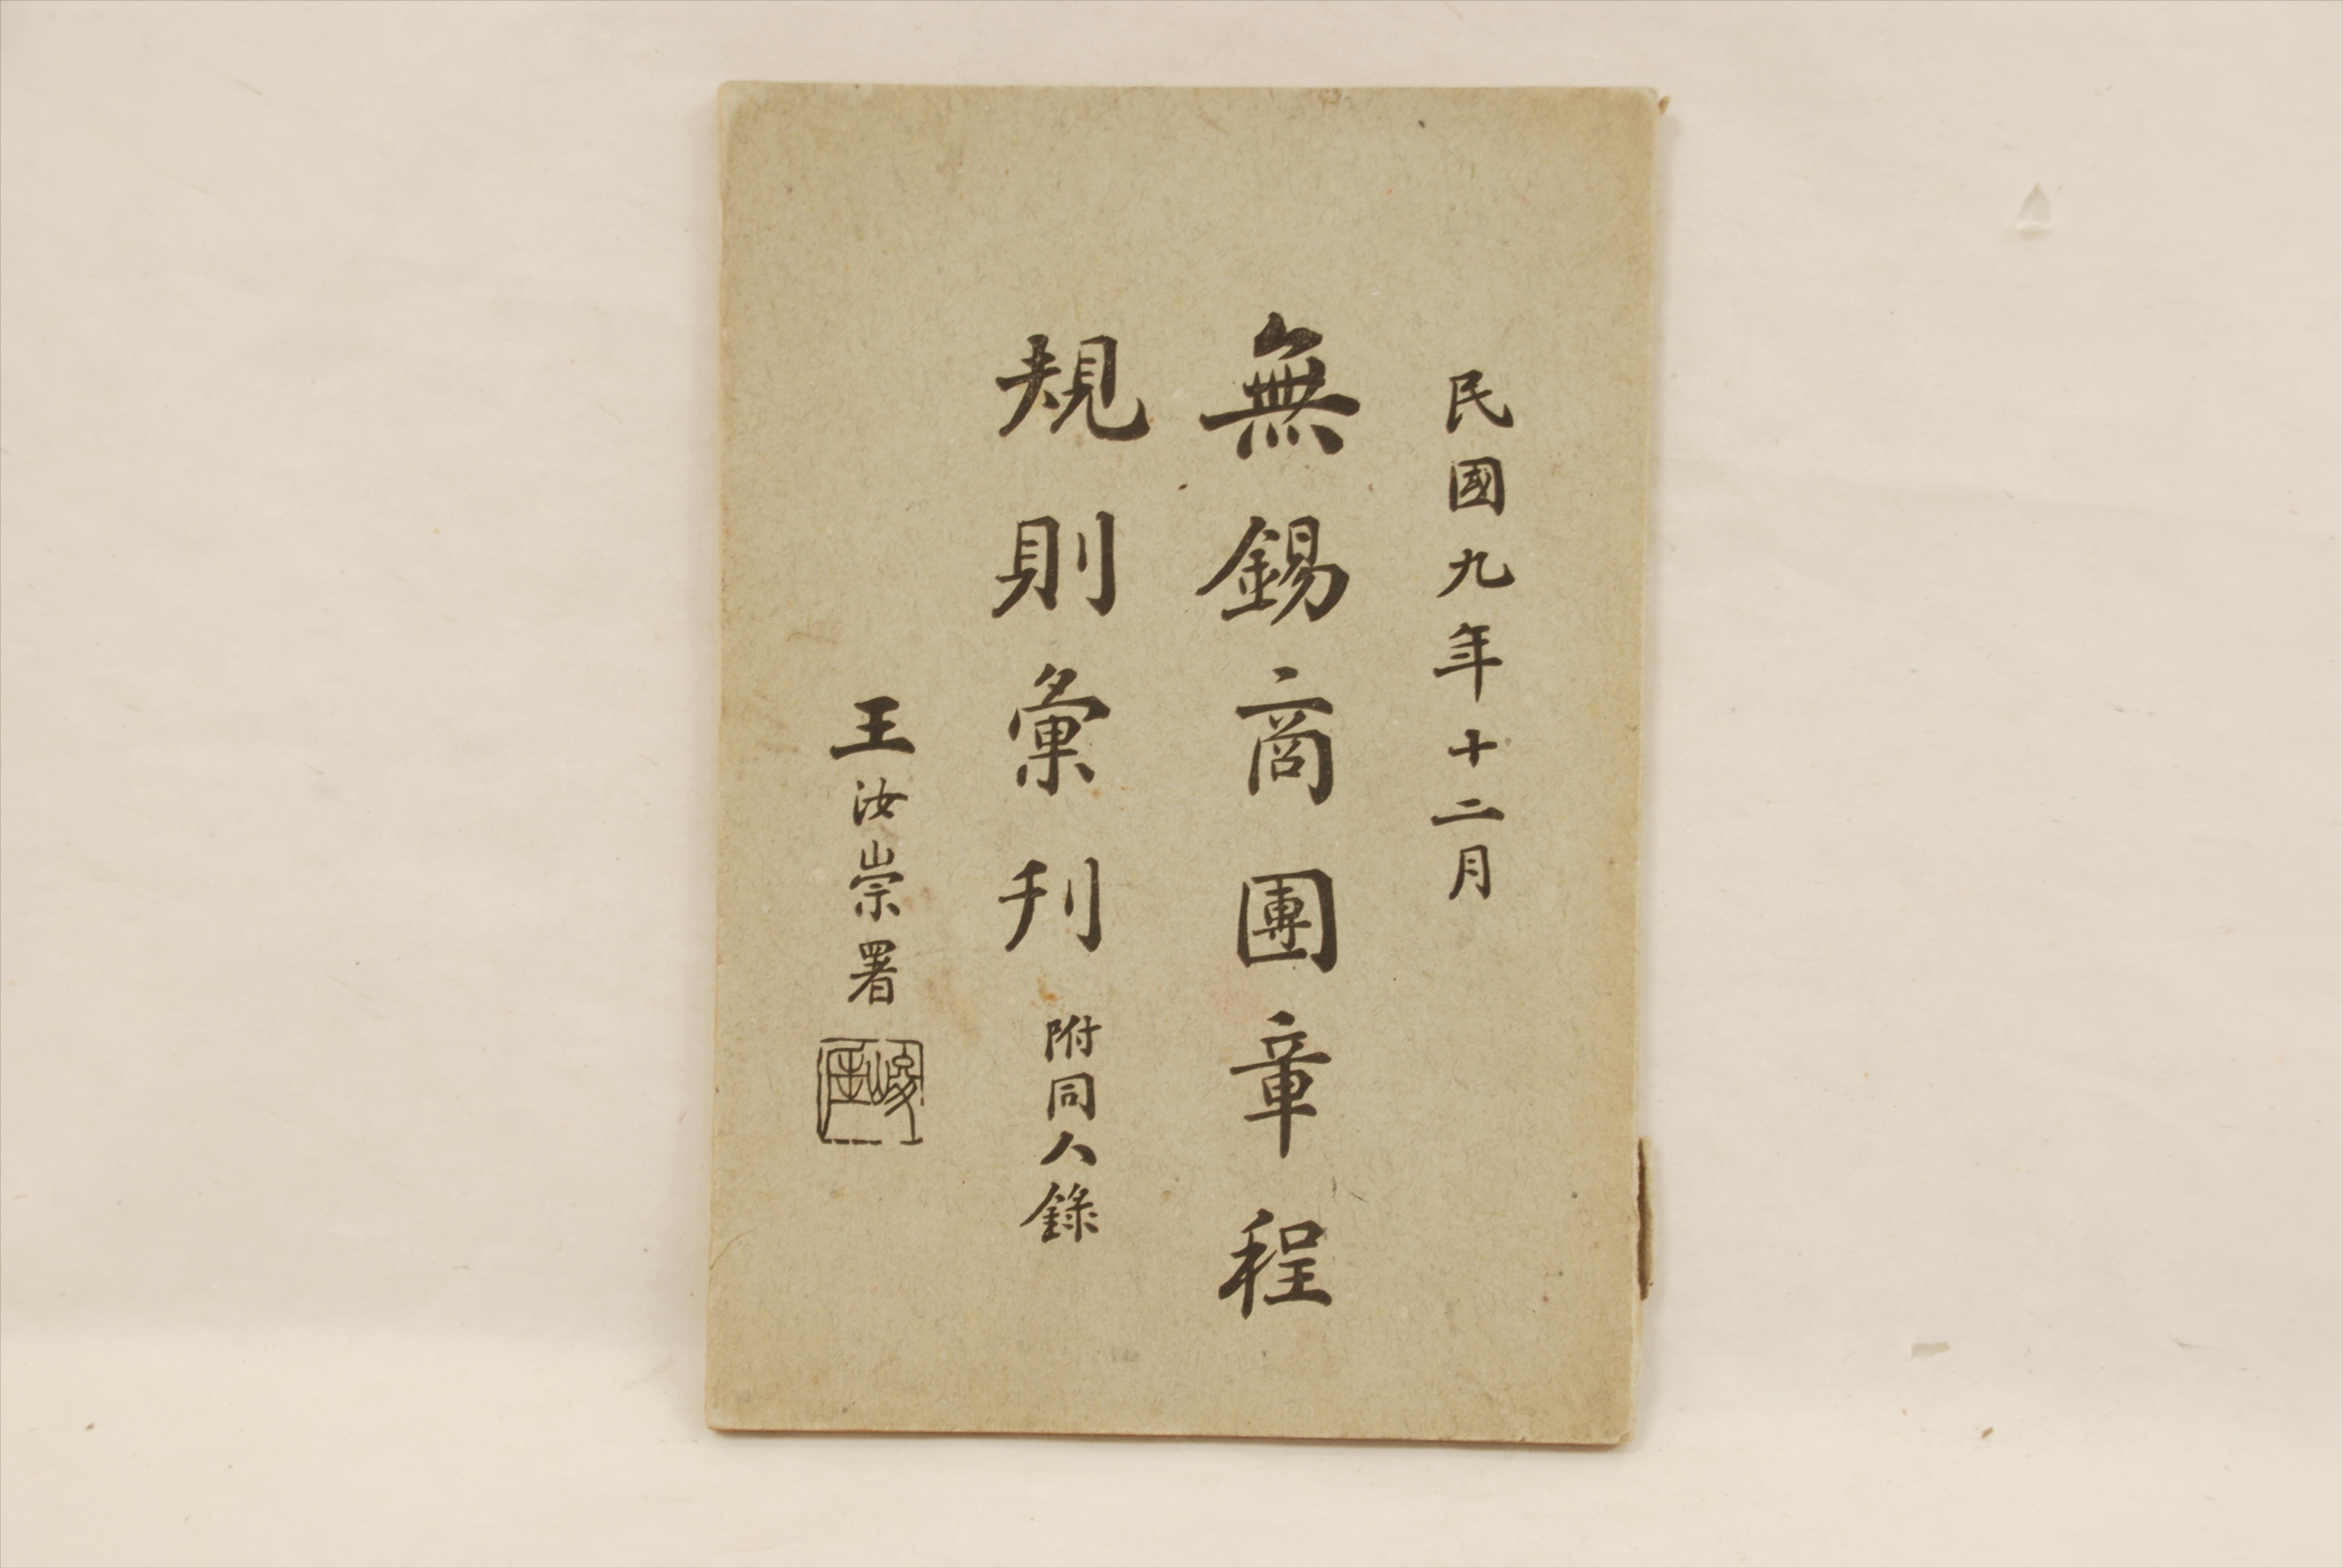 民國九年十二月
無錫商團章程
規則彙刊 附同人錄
王汝崇署